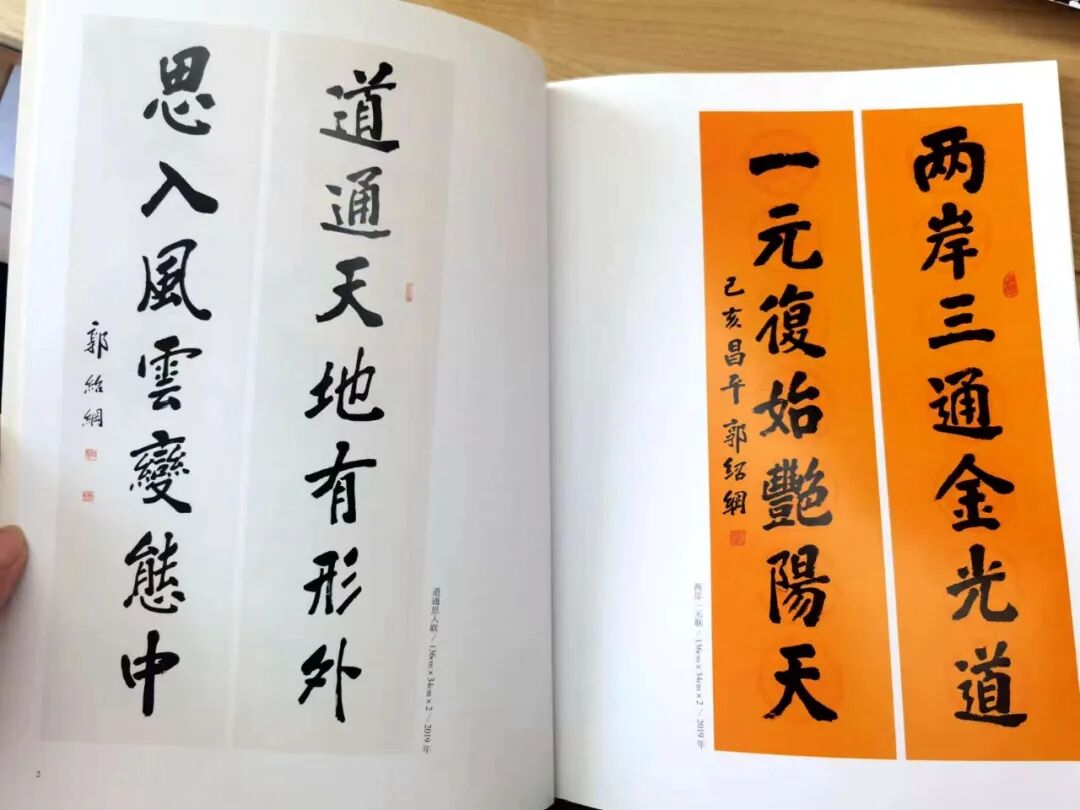 道通天地有形外
思入風雲變態中
郭紹綱
道通思入联 / 136cm×34cm×2 / 2019年
2
两岸三通金光道
一元復始艷陽天
己亥昌平郭绍綱
两岸一元联 / 136cm×34cm×2 / 2019年